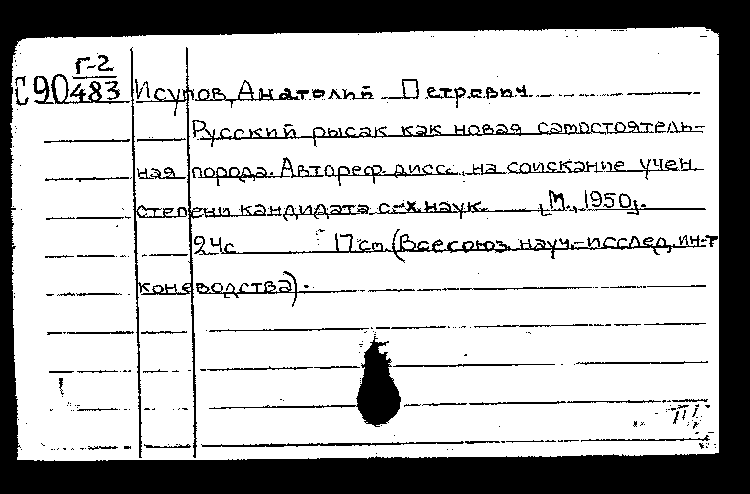 Г-2
С90 483 Исупов, Анатолий Петрович
Русский рысак как новая самостоятель-
ная порода. Автореф. дисс. на соискание учен.
степени кандидата с.-х. наук. [М., 1950].
24с 17 см. (Всесоюз. науч.-исслед. ин-т
коневодства).